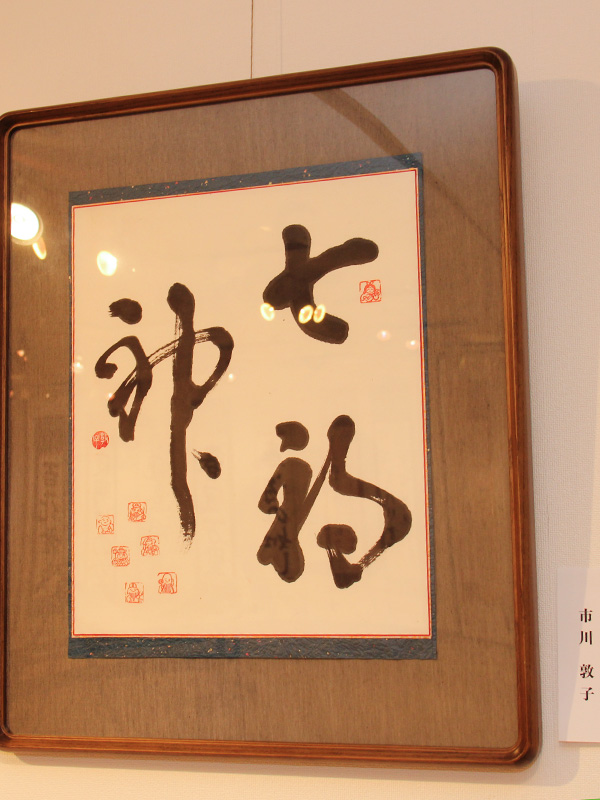 七福
神
市川 敦子